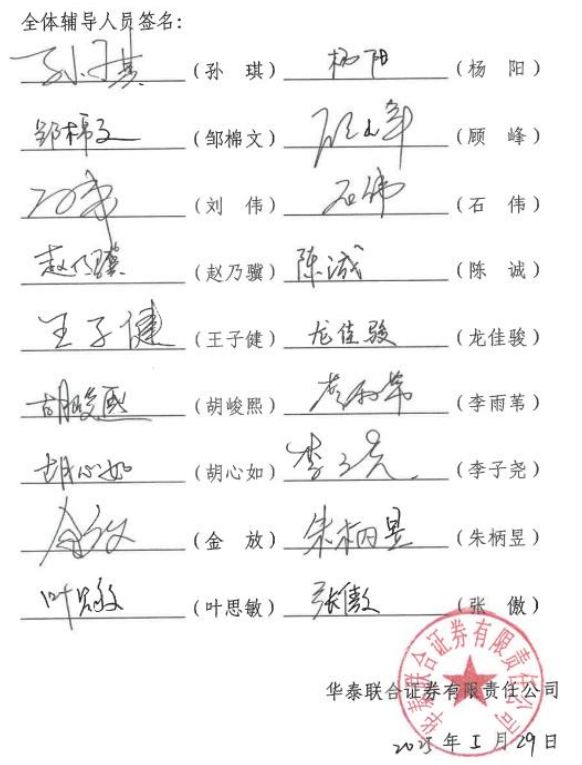 全体辅导人员签名：
孙琪（孙 琪）杨阳（杨 阳）
邹棉文（邹棉文）顾峰（顾 峰）
刘伟（刘 伟）石伟（石 伟）
赵乃骥（赵乃骥）陈诚（陈 诚）
王子健（王子健）龙佳骏（龙佳骏）
胡峻熙（胡峻熙）李雨苇（李雨苇）
胡心如（胡心如）李子尧（李子尧）
金放（金 放）朱柄昱（朱柄昱）
叶思敏（叶思敏）张傲（张 傲）
华泰联合证券有限责任公司
华泰联合证券有限责任公司
2025年1月29日